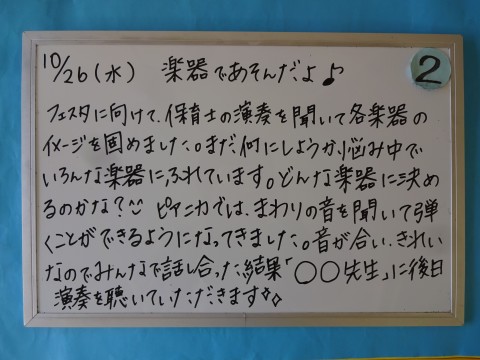 10/26(水) 楽器であそんだよ♪
2
フェスタに向けて、保育士の演奏を聞いて各楽器の
イメージを固めました。まだ何にしようか悩み中で
いろんな楽器にふれています。どんな楽器に決め
るのかな?☺ ピアニカでは、まわりの音を聞いて弾
くことができるようになってきました。音が合い、きれい
なのでみんなで話し合った結果「○○先生」に後日
演奏を聴いていただきます✧✧